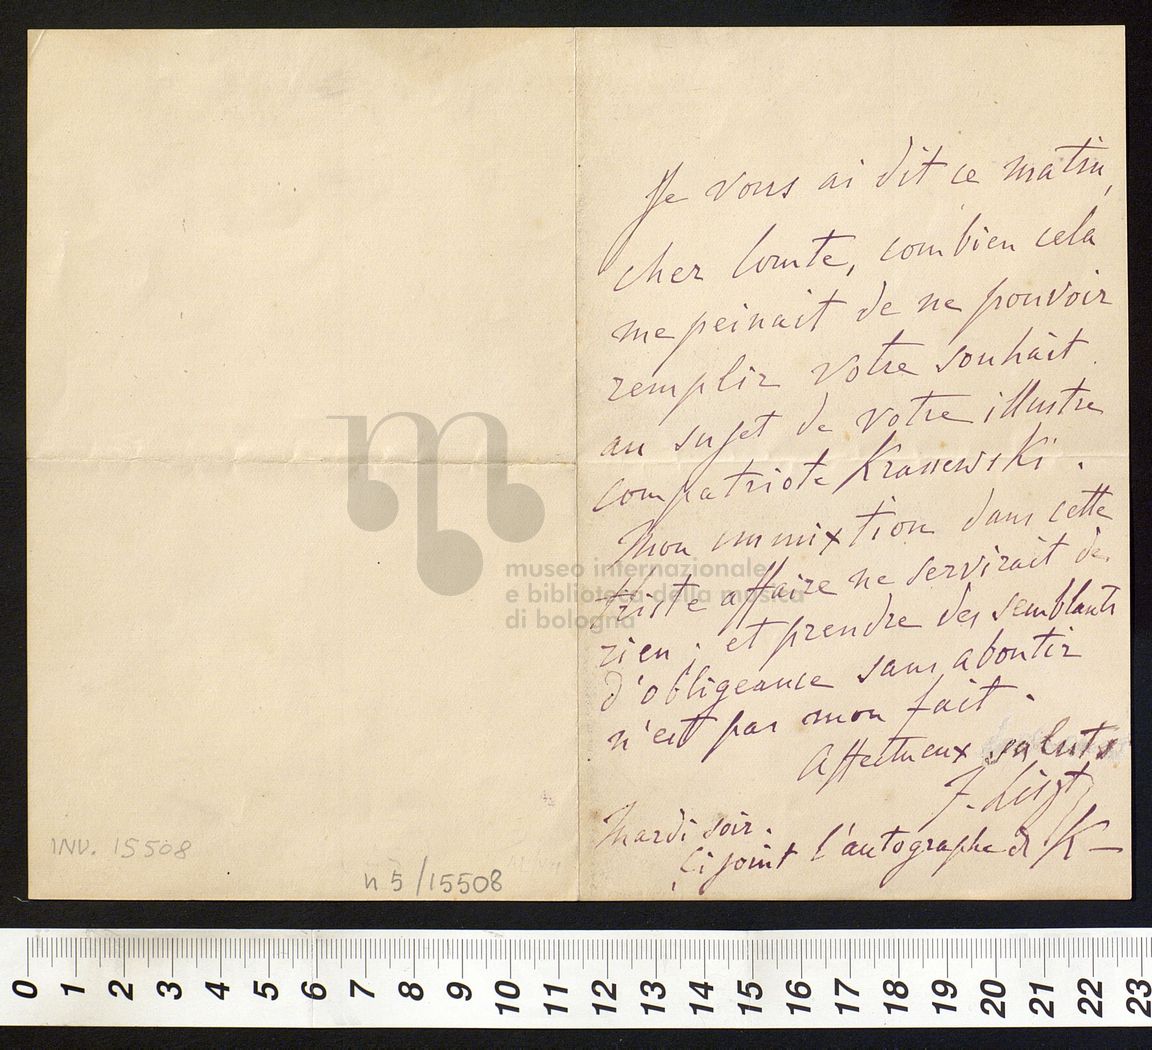 Je vous ai dit ce matin,
cher Comte, combien cela
me peinait de ne pouvoir
remplir votre souhait
au sujet de votre illustre
compatriote Krasewski.
Mon immixtion dans cette
triste affaire ne servirait de
rien; et prendre des semblants
d'obligeance sans aboutir
n'est pas mon fait.
Affectueux saluts
F. Liszt
Mardi soir.
Ci joint l'autographe de K—
INV. 15508
n 5 / 15508
museo internazionale
e biblioteca della musica
di bologna
0 1 2 3 4 5 6 7 8 9 10 11 12 13 14 15 16 17 18 19 20 21 22 23